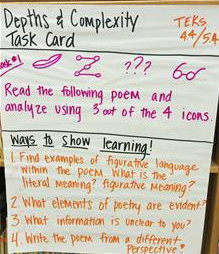 Depths & Complexity TEKS
Task Card 4.4/5.4
Task #1 ???
Read the following poem and
analyze using 3 out of the 4 icons.
Ways to show learning!
1. Find examples of figurative language
within the poem. What is the
literal meaning? figurative meaning?
2. What elements of poetry are evident?
3. What information is unclear to you?
4. Write the poem from a different
perspective!